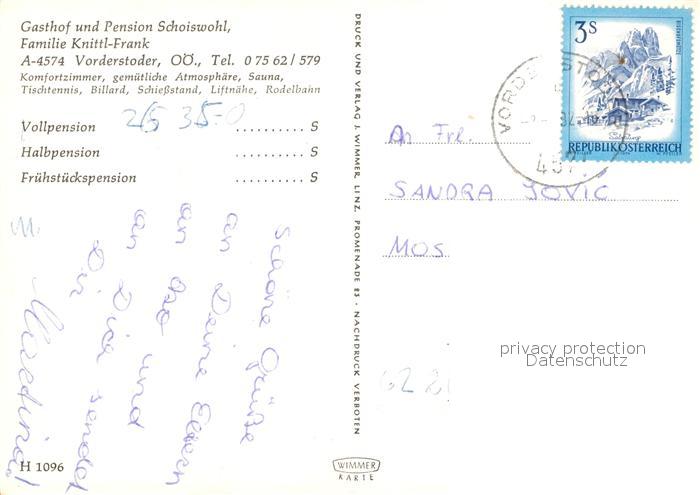 Gasthof und Pension Schoiswohl,
Familie Knittl-Frank
A-4574 Vorderstoder, OÖ., Tel. 0 75 62 / 579
Komfortzimmer, gemütliche Atmosphäre, Sauna,
Tischtennis, Billard, Schießstand, Liftnähe, Rodelbahn
Vollpension .......... S
Halbpension .......... S
Frühstückspension .......... S
Schöne Grüße
an Deine Eltern
an und
an Dich sendet
Dir
H 1096
DRUCK UND VERLAG J. WIMMER, LINZ, PROMENADE 23 - NACHDRUCK VERBOTEN
WIMMER
KARTE
3 S
REPUBLIK ÖSTERREICH
An Frl.
SANDRA JOVIC
MOS
privacy protection
Datenschutz